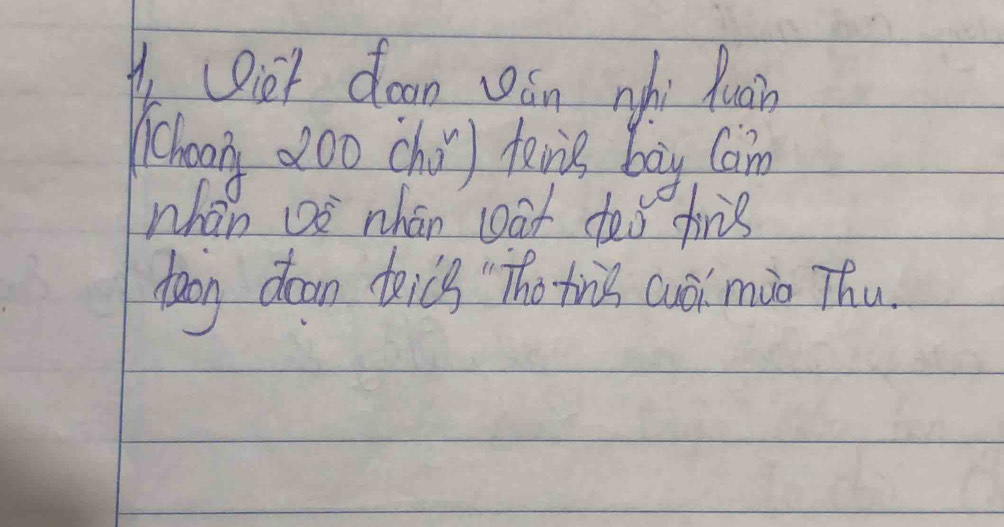 1, Viết đoạn văn nghị luận
(Khoảng 200 chữ) trình bày Cảm
nhận về nhân vật trữ tình
trong đoạn trích "Thơ tình cuối mùa Thu.